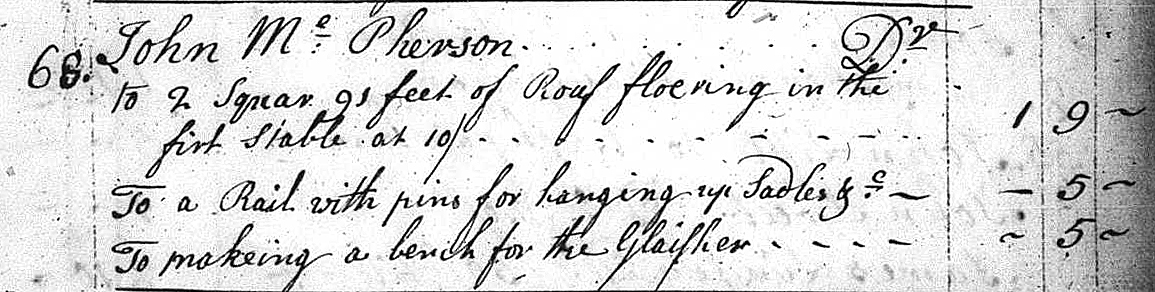 68. John Mc Pherson . . . . . . . Dr
To 2 Squar 91 feet of Rouf floering in the
firt Stable at 10/ - - - - - - - - - 1 9 ~
To a Rail with pins for hanging up Sadles &c — — 5 ~
To makeing a bench for the Glaisher - - - - ~ 5 ~